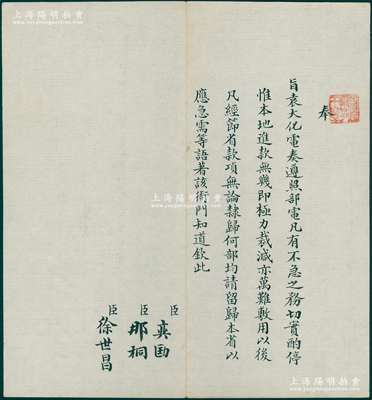 上海陽明拍賣
www.ymingauction.com
奉
旨袁大化電奏遵照部電凡有不急之務切實酌停
惟本地進款無幾即極力裁減亦萬難敷用以後
凡經節省款項無論隸歸何部均請留歸本省以
應急需等語著該衙門知道欽此
臣 奕劻
臣 那桐
臣 徐世昌